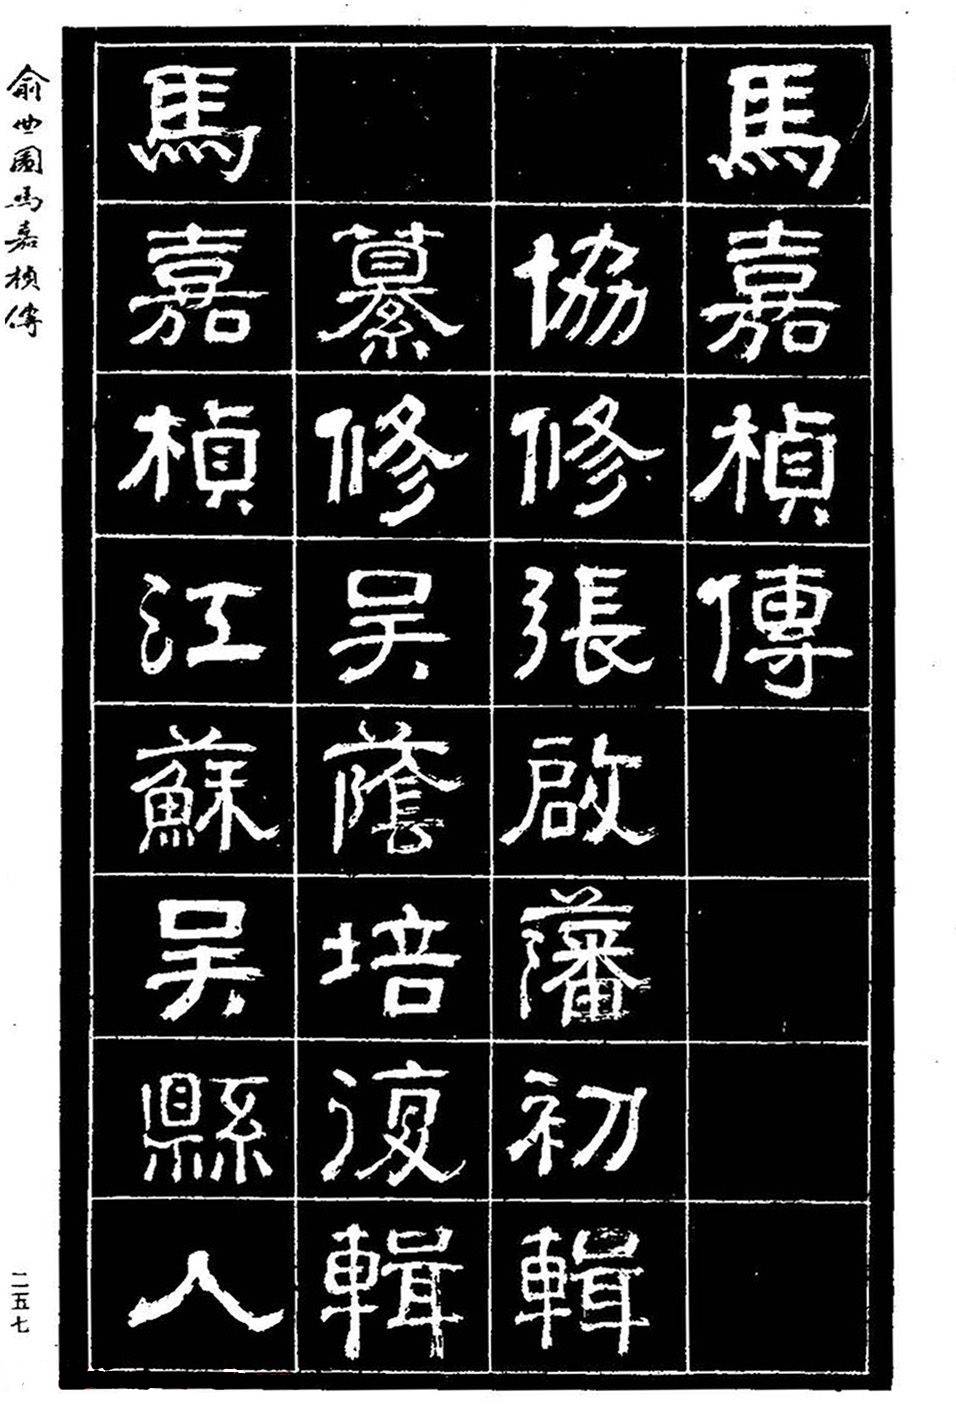 馬嘉楨傳
協修張啟藩初輯
纂修吳蔭培復輯
馬嘉楨江蘇吳縣人
俞世圃馬嘉楨傳
二五七